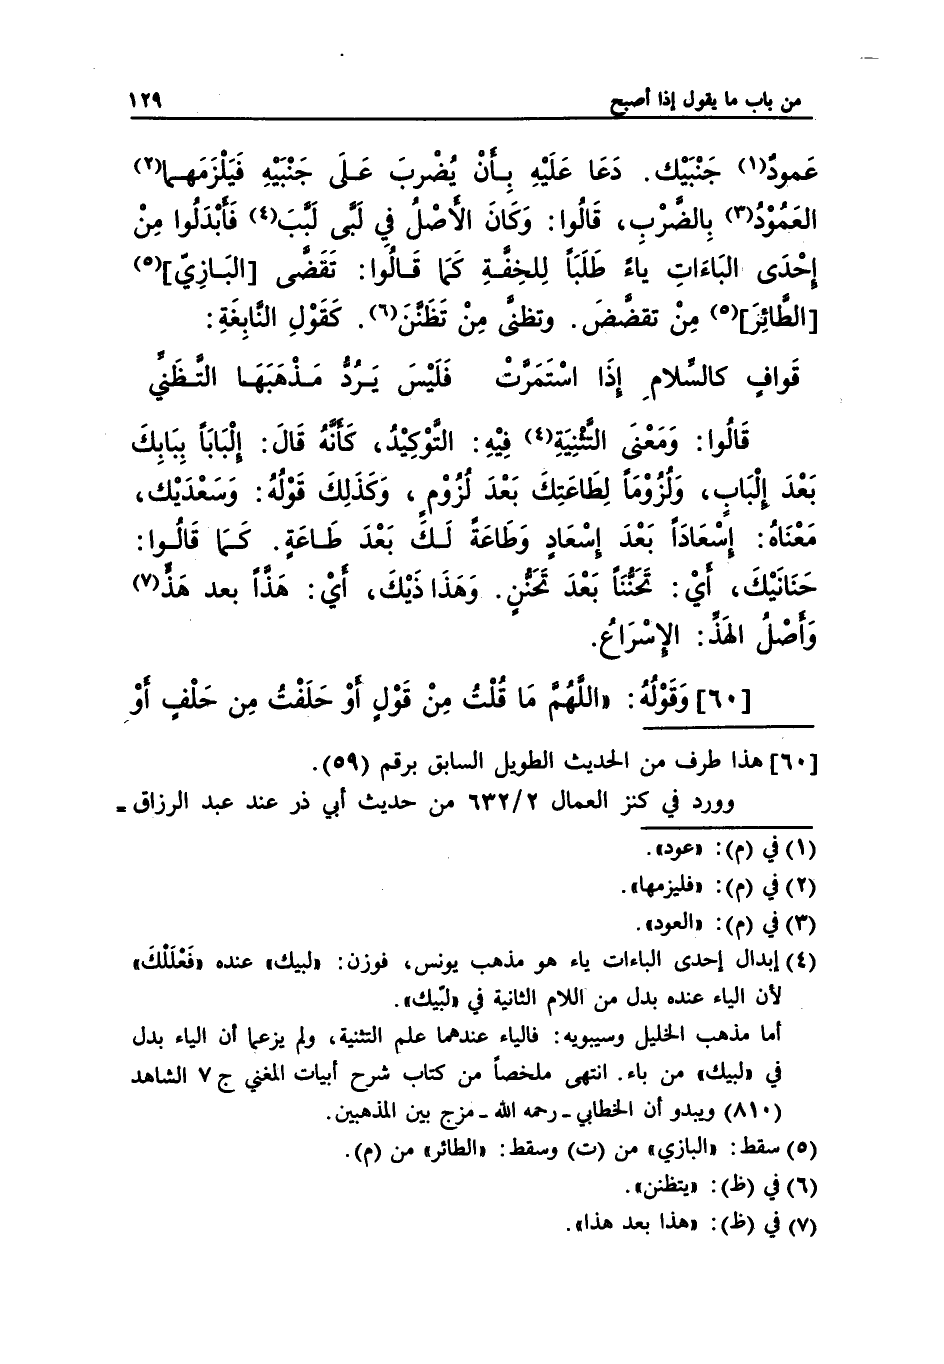 من باب ما يقول إذا أصبح ١٢٩
عَمودُ(١) جَنْبَيْك. دَعَا عَلَيْهِ بِأَنْ يُضْرِبَ عَلَى جَنْبَيْهِ فَيَلْزَمَهما(٢)
العَمُوْدُ(٣) بِالضَّرْبِ، قَالُوا: وَكَانَ الأَصْلُ فِي لَبَّى لَبَّبَ(٤) فَأَبْدَلُوا مِنْ
إِحْدَى البَاءَاتِ ياءً طَلَبَاً لِلخِفَّةِ كَمَا قَالُوا: تَقَضَّى [البَازِيّ](٥)
[الطَّائِرَ](٥) مِنْ تقضَّضَ. وتظنَّى مِنْ تَظَنَّنَ(٦). كَقَوْلِ النَّابِغَةِ:
قَوافٍ كالسِّلامِ إِذَا اسْتَمَرَّتْ فَلَيْسَ يَرُدُّ مَذْهَبَهَا التَّظَنِّي
قَالُوا: وَمَعْنَى التَّثْنِيَةِ(٤) فِيْهِ: التَّوْكِيْدُ، كَأَنَّهُ قَالَ: إِلْبَابَاً بِبَابِكَ
بَعْدَ إِلْبَابٍ، وَلُزُوْمَاً لِطَاعَتِكَ بَعْدَ لُزُوْمٍ، وَكَذلِكَ قَوْلُهُ: وَسَعْدَيْك،
مَعْنَاهُ: إِسْعَادَاً بَعْدَ إِسْعَادٍ وَطَاعَةً لَكَ بَعْدَ طَاعَةٍ. كَمَا قَالُوا:
حَنَانَيْكَ، أَيْ: تَحَنُّنَاً بَعْدَ تَحَنُّنٍ. وَهَذَا ذَيْكَ، أَيْ: هَذَّاً بعد هَذٍّ(٧)
وَأَصْلُ الهَذِّ: الإِسْرَاعُ.
[٦٠] وَقَوْلُهُ: «اللَّهُمَّ مَا قُلْتُ مِنْ قَوْلٍ أَوْ حَلَفْتُ مِن حَلْفٍ أَوْ
[٦٠] هذا طرف من الحديث الطويل السابق برقم (٥٩).
وورد في كنز العمال ٦٣٢/٢ من حديث أبي ذر عند عبد الرزاق ـ
(١) في (م): «عود».
(٢) في (م): «فليزمها».
(٣) في (م): «العود».
(٤) إبدال إحدى الباءات ياء هو مذهب يونس، فوزن: «لبيك» عنده «فَعْلَلْكَ»
لأن الياء عنده بدل من اللام الثانية في «لبّيك».
أما مذهب الخليل وسيبويه: فالياء عندهما علم التثنية، ولم يزعما أن الياء بدل
في «لبيك» من باء. انتهى ملخصاً من كتاب شرح أبيات المغني ج ٧ الشاهد
(٨١٠) ويبدو أن الخطابي ـ رحمه الله ـ مزج بين المذهبين.
(٥) سقط: «البازي» من (ت) وسقط: «الطائر» من (م).
(٦) في (ظ): «يتظنن».
(٧) في (ظ): «هذا بعد هذا».